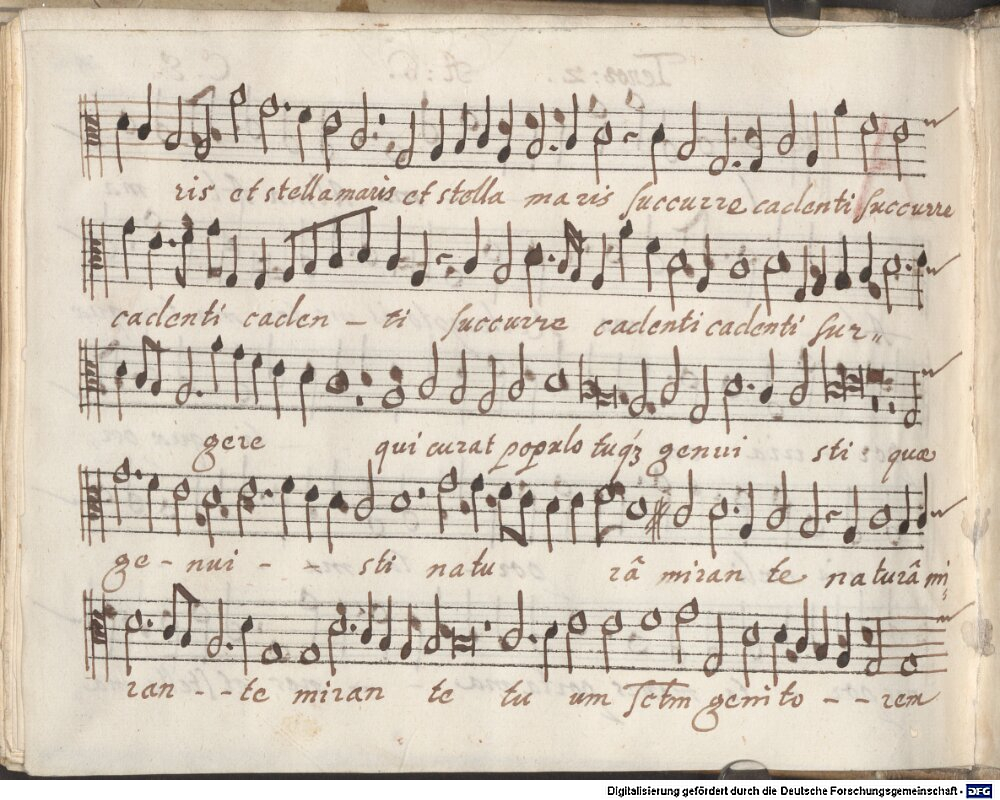 ris et stella maris et stella maris succurre cadenti succurre
cadenti caden - ti succurre cadenti cadenti sur„
gere qui curat populo tuq́ʒ genui sti quæ
ge - nui - - sti natu râ miran te naturâ mi„
ran - - te miran te tu um Sctm̄ genito - - rem
Digitalisierung gefördert durch die Deutsche Forschungsgemeinschaft - DFG